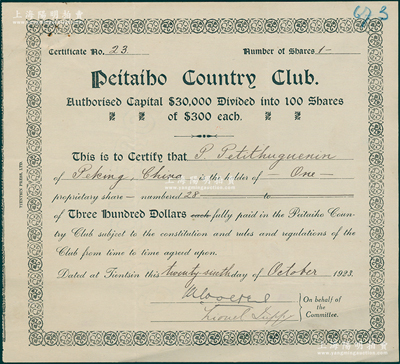 Certificate No. 23.
Number of Shares 1-
Peitaiho Country Club.
Authorised Capital $30,000 Divided into 100 Shares
of $300 each.
This is to Certify that P. Petithuguenin
of Peking, China is the holder of — One —
proprietary share — numbered 28 — to
of Three Hundred Dollars each fully paid in the Peitaiho Coun-
try Club subject to the constitution and rules and regulations of the
Club from time to time agreed upon.
Dated at Tientsin this twenty sixth day of October 1923.
On behalf of
the
Committee.
Lionel
TIENTSIN PRESS, LTD.